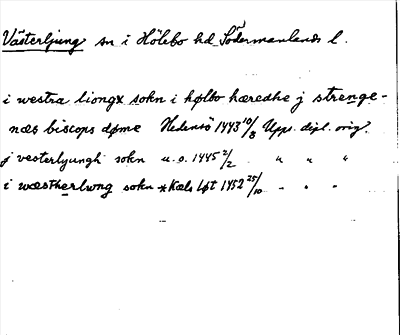 Västerljung sn i Hölebo hd Södermanlands l.
i westra liongx sokn i hølbo hæredhe j strenge-
næs biscops døme Hedensö 1443 10/8 Upps. dipl. orig.
j vesterljungh sokn u.o. 1445 2/2 " " "
i wæstherlwng sokn *Kæls løt 1452 25/10 " " "